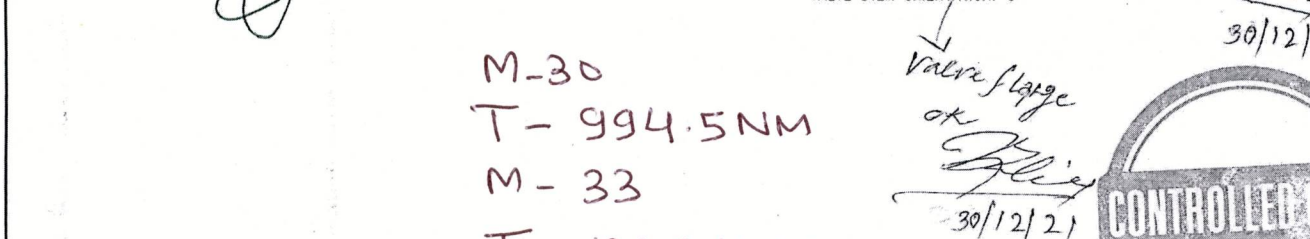 30/12/
M-30
T- 994.5NM
M- 33
valve flange
ok
30/12/21
CONTROLLED